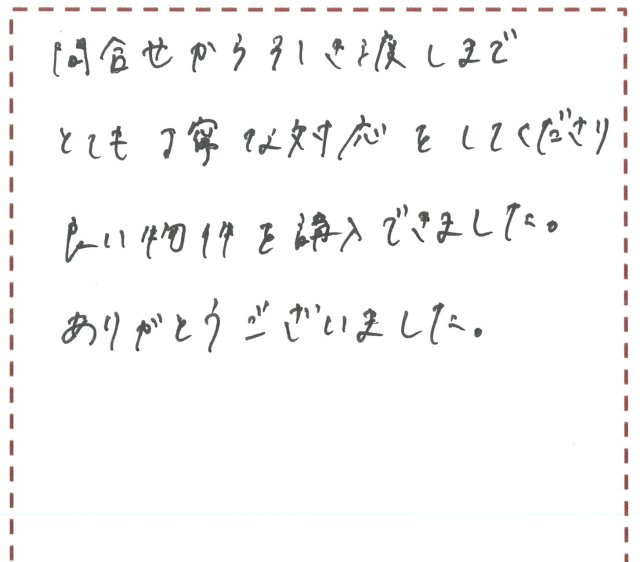 問合せから引き渡しまで
とても丁寧な対応をしてくださり
良い物件を購入できました。
ありがとうございました。